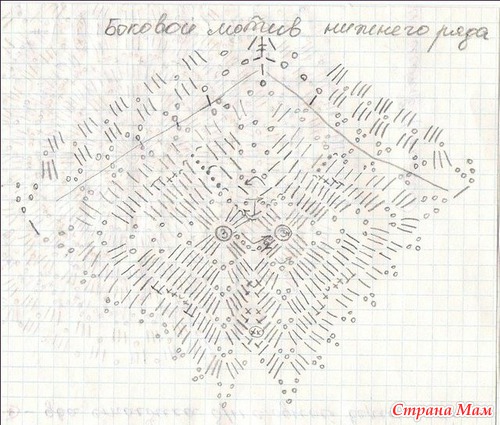 Боковой мотив нижнего ряда
Страна Мам